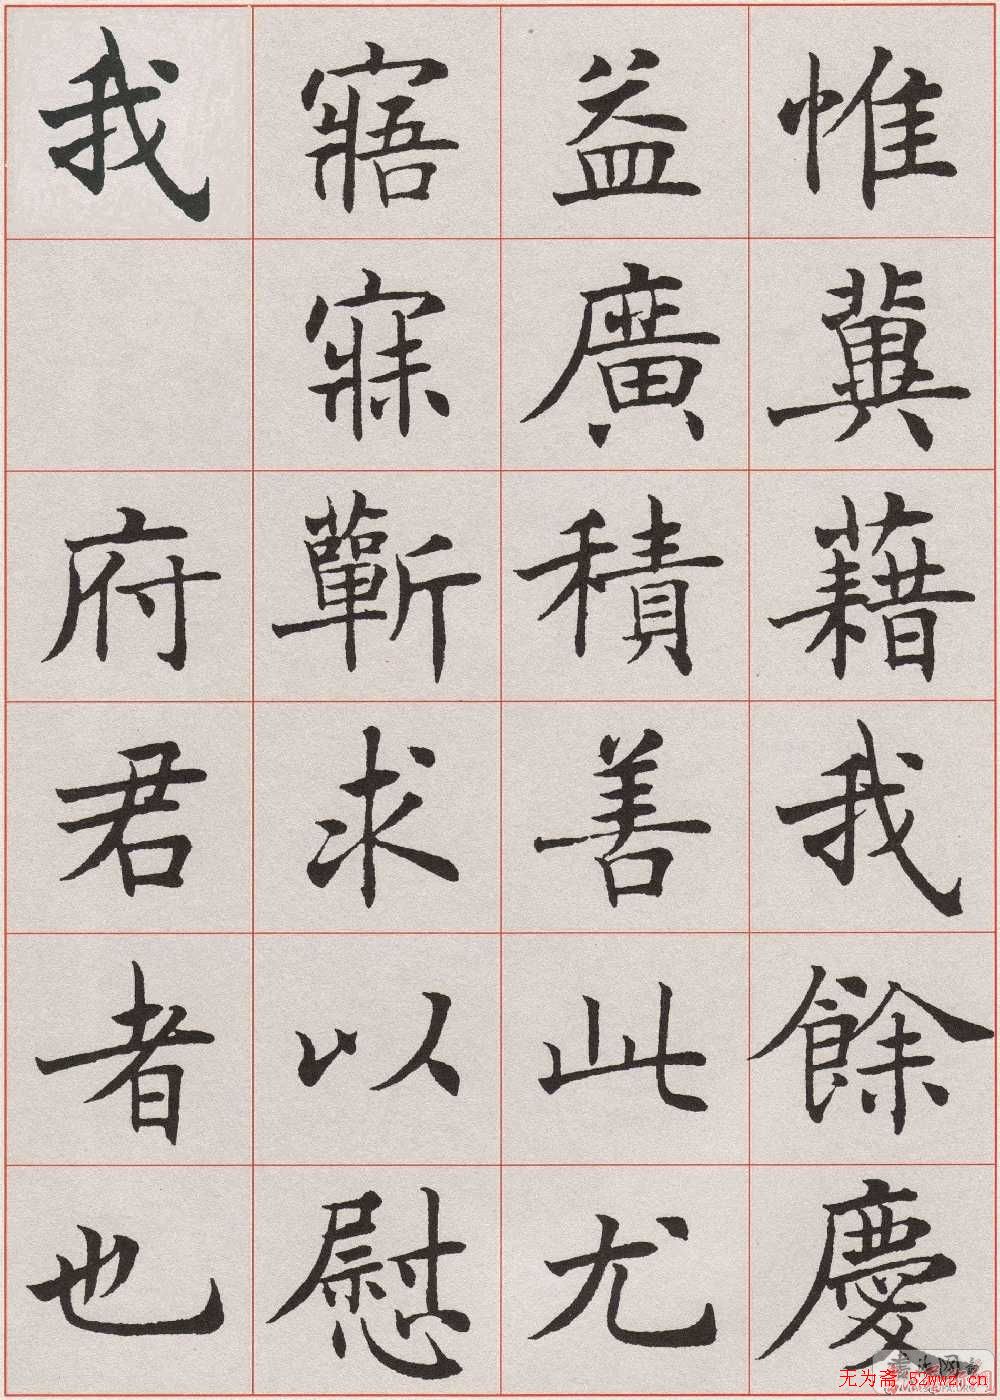 惟冀藉我餘慶
益廣積善此尤
寤寐蘄求以慰
我 府君者也
无为斋 52wwz.cn